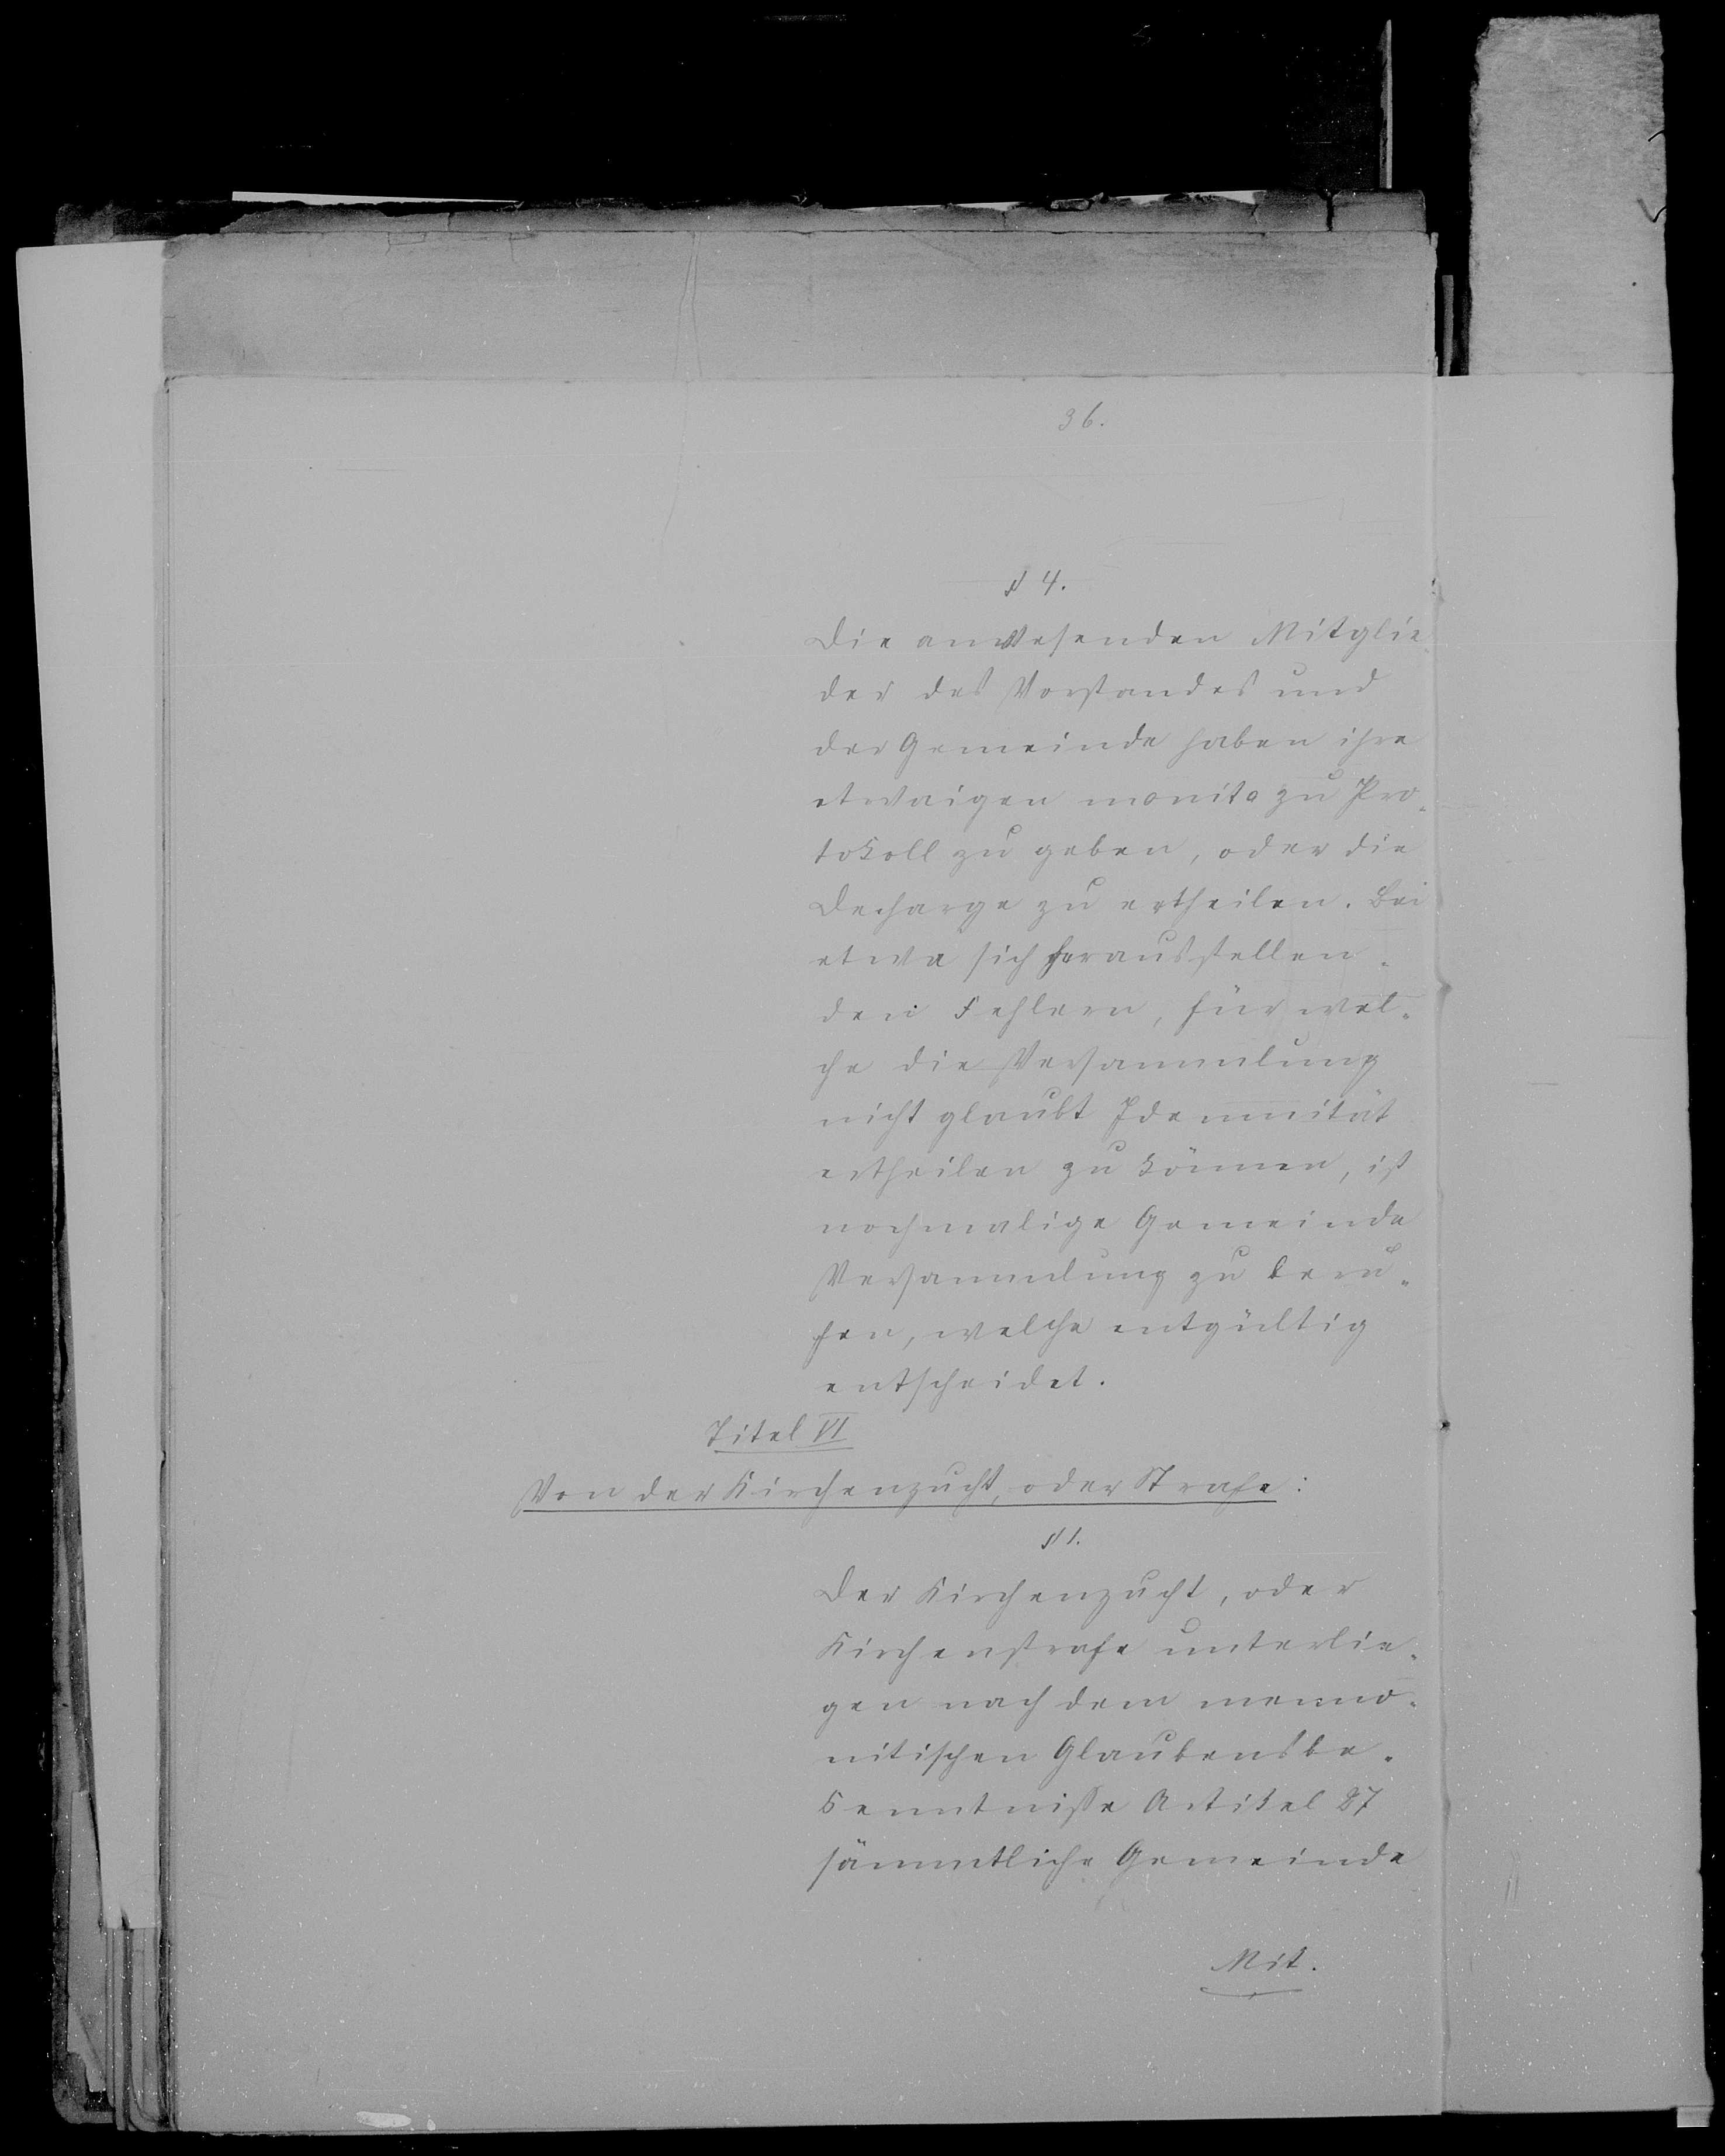 36.
§ 4.
Die anwesenden Mitglie-
der des Vorstandes und
der Gemeinde haben ihre
etwaigen monita zu Pro-
tokoll zu geben, oder die
Decharge zu ertheilen. Bei
etwa sich herausstellen-
den Fehlern, für wel-
che die Versammlung
nicht glaubt Idemnität
ertheilen zu können, ist
nochmalige Gemeinde
Versammlung zu beru-
fen, welche entgültig
entscheidet.
Titel VI
Von der Kirchenzucht, oder Strafe:
§ 1.
Der Kirchenzucht, oder
Kirchenstrafe unterlie-
gen nach dem menno-
nitischen Glaubensbe-
kenntnisse Artikel 27
sämmtliche Gemeinde
Mit.